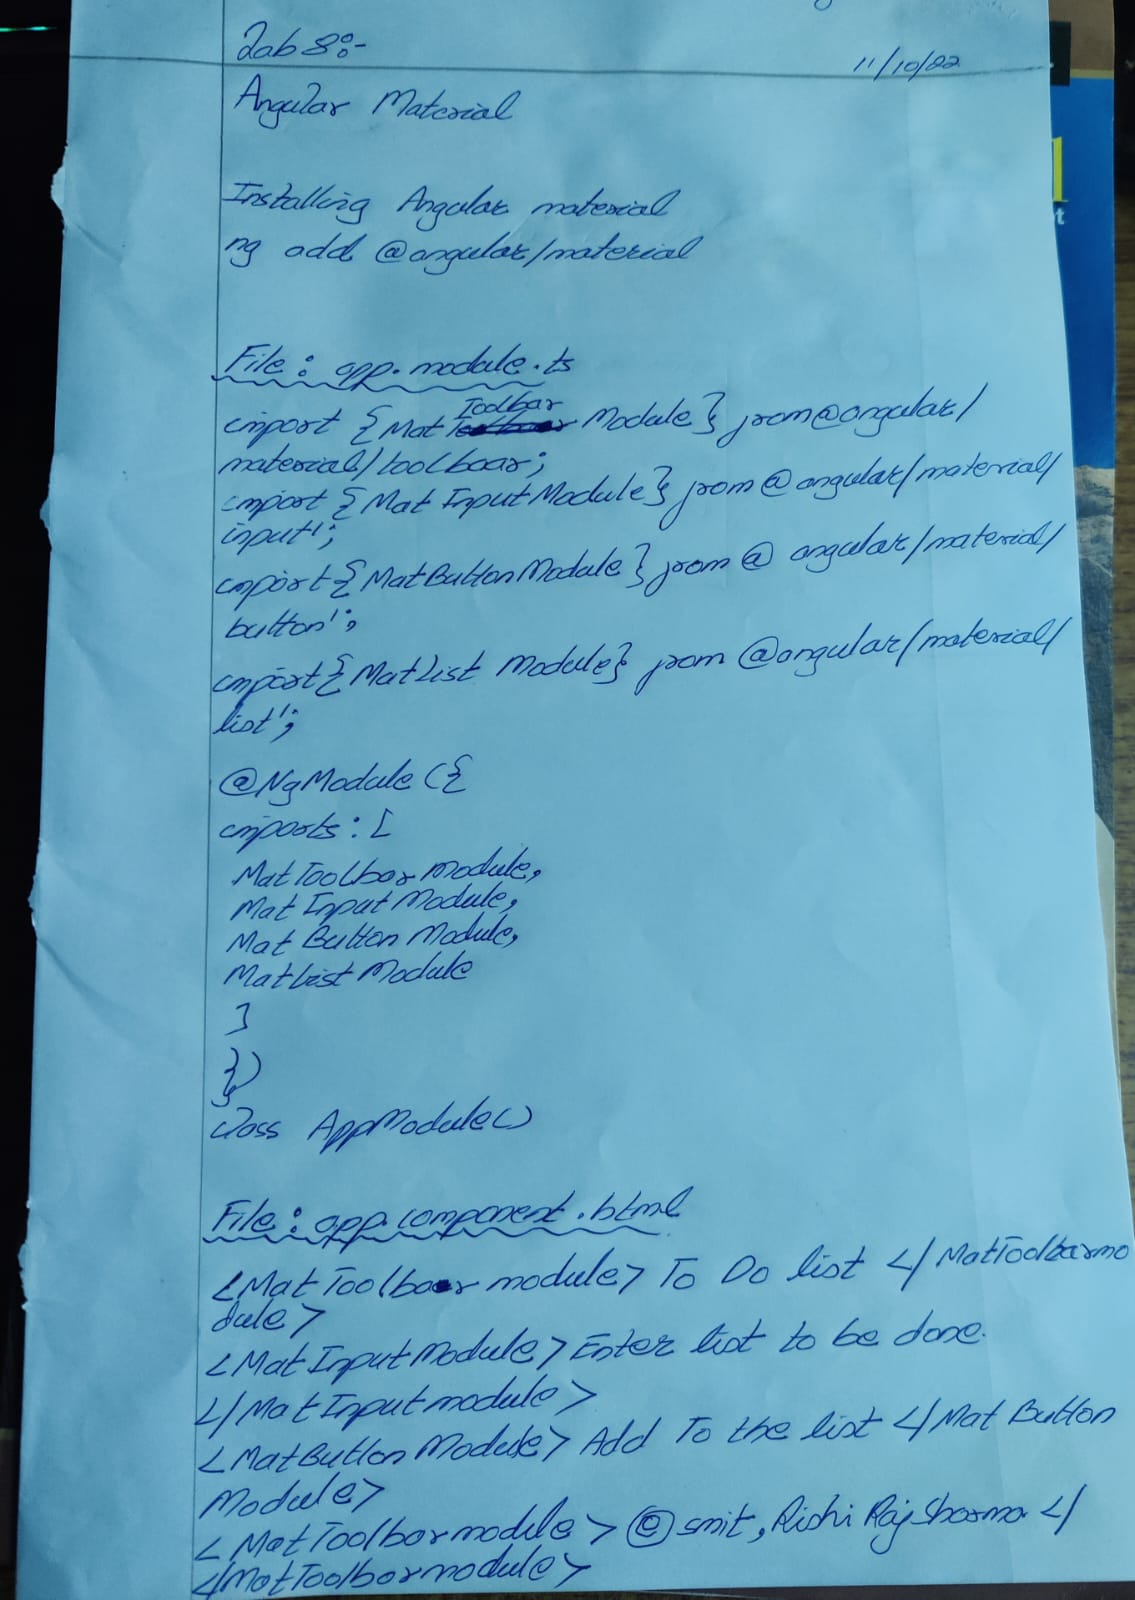 Lab 8:-
11/10/22
Angular Material
Installing Angular material
ng add @angular/material
File: app.module.ts
import {MatToolbarModule} from @angular/
material/toolbaar;
import {MatInputModule} from @angular/material/
input';
import {MatButtonModule} from @ angular/material/
button';
import {MatList Module} from @angular/material/
list';
@NgModule ({
imports: [
MatToolbarModule,
MatInputModule,
MatButtonModule,
MatListModule
]
})
class AppModule()
File: app.component.html
<MatToolbar module> To Do list </MatToolbarmo
dule>
<MatInputModule> Enter list to be done.
</MatInputmodule>
<MatButtonModule> Add To the list </MatButton
Module>
<MatToolbarmodule> © smit, Rishi Raj Sharma </
</MatToolbarmodule>